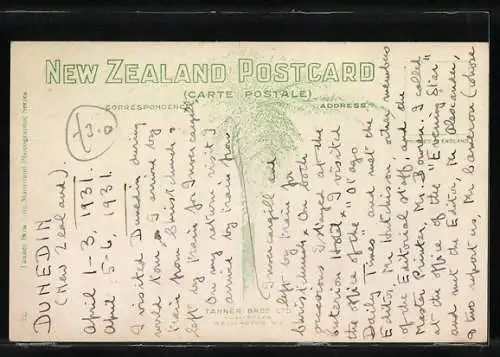 NEW ZEALAND POSTCARD
(CARTE POSTALE)
CORRESPONDENCE
ADDRESS
TANNER BROS LTD
DUNEDIN
(New Zealand).
April 1-3, 1931.
April 5-6, 1931.
I visited Dunedin during
world tour. I arrived by
train from Christchurch &
left by train for Invercargill.
On my return visit I
arrived by train from
Invercargill and
left by train for
Christchurch. On both
occasions I stayed at the
Hotel. I visited
the office of the "Otago
Daily Times" and met the
Editor, Mr Hutchison, other members
of the Editorial staff, and the
Master Printer, Mr Bowen. I called
at the office of the "Evening Star"
and met the Editor, Mr Alexander,
& two reporters, Mr Cameron (whose